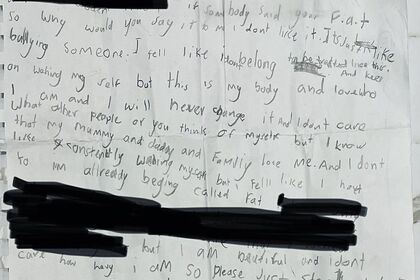 if sombody said your F.a.t
so why would you say it to me i dont like it. It's like
bullying someone. I fell like I dont belong to be like this.
And keep
on wahing my self but this is my body and love who
I am and I will never change it and I dont care
What other people or you think of myself but I know
that my mummy and daddy and Family love me. And I dont
like constently wahing myself but I fell like I have
to im allready beging called Fat
but I am beautiful and i dont
care how havy i am so please Just